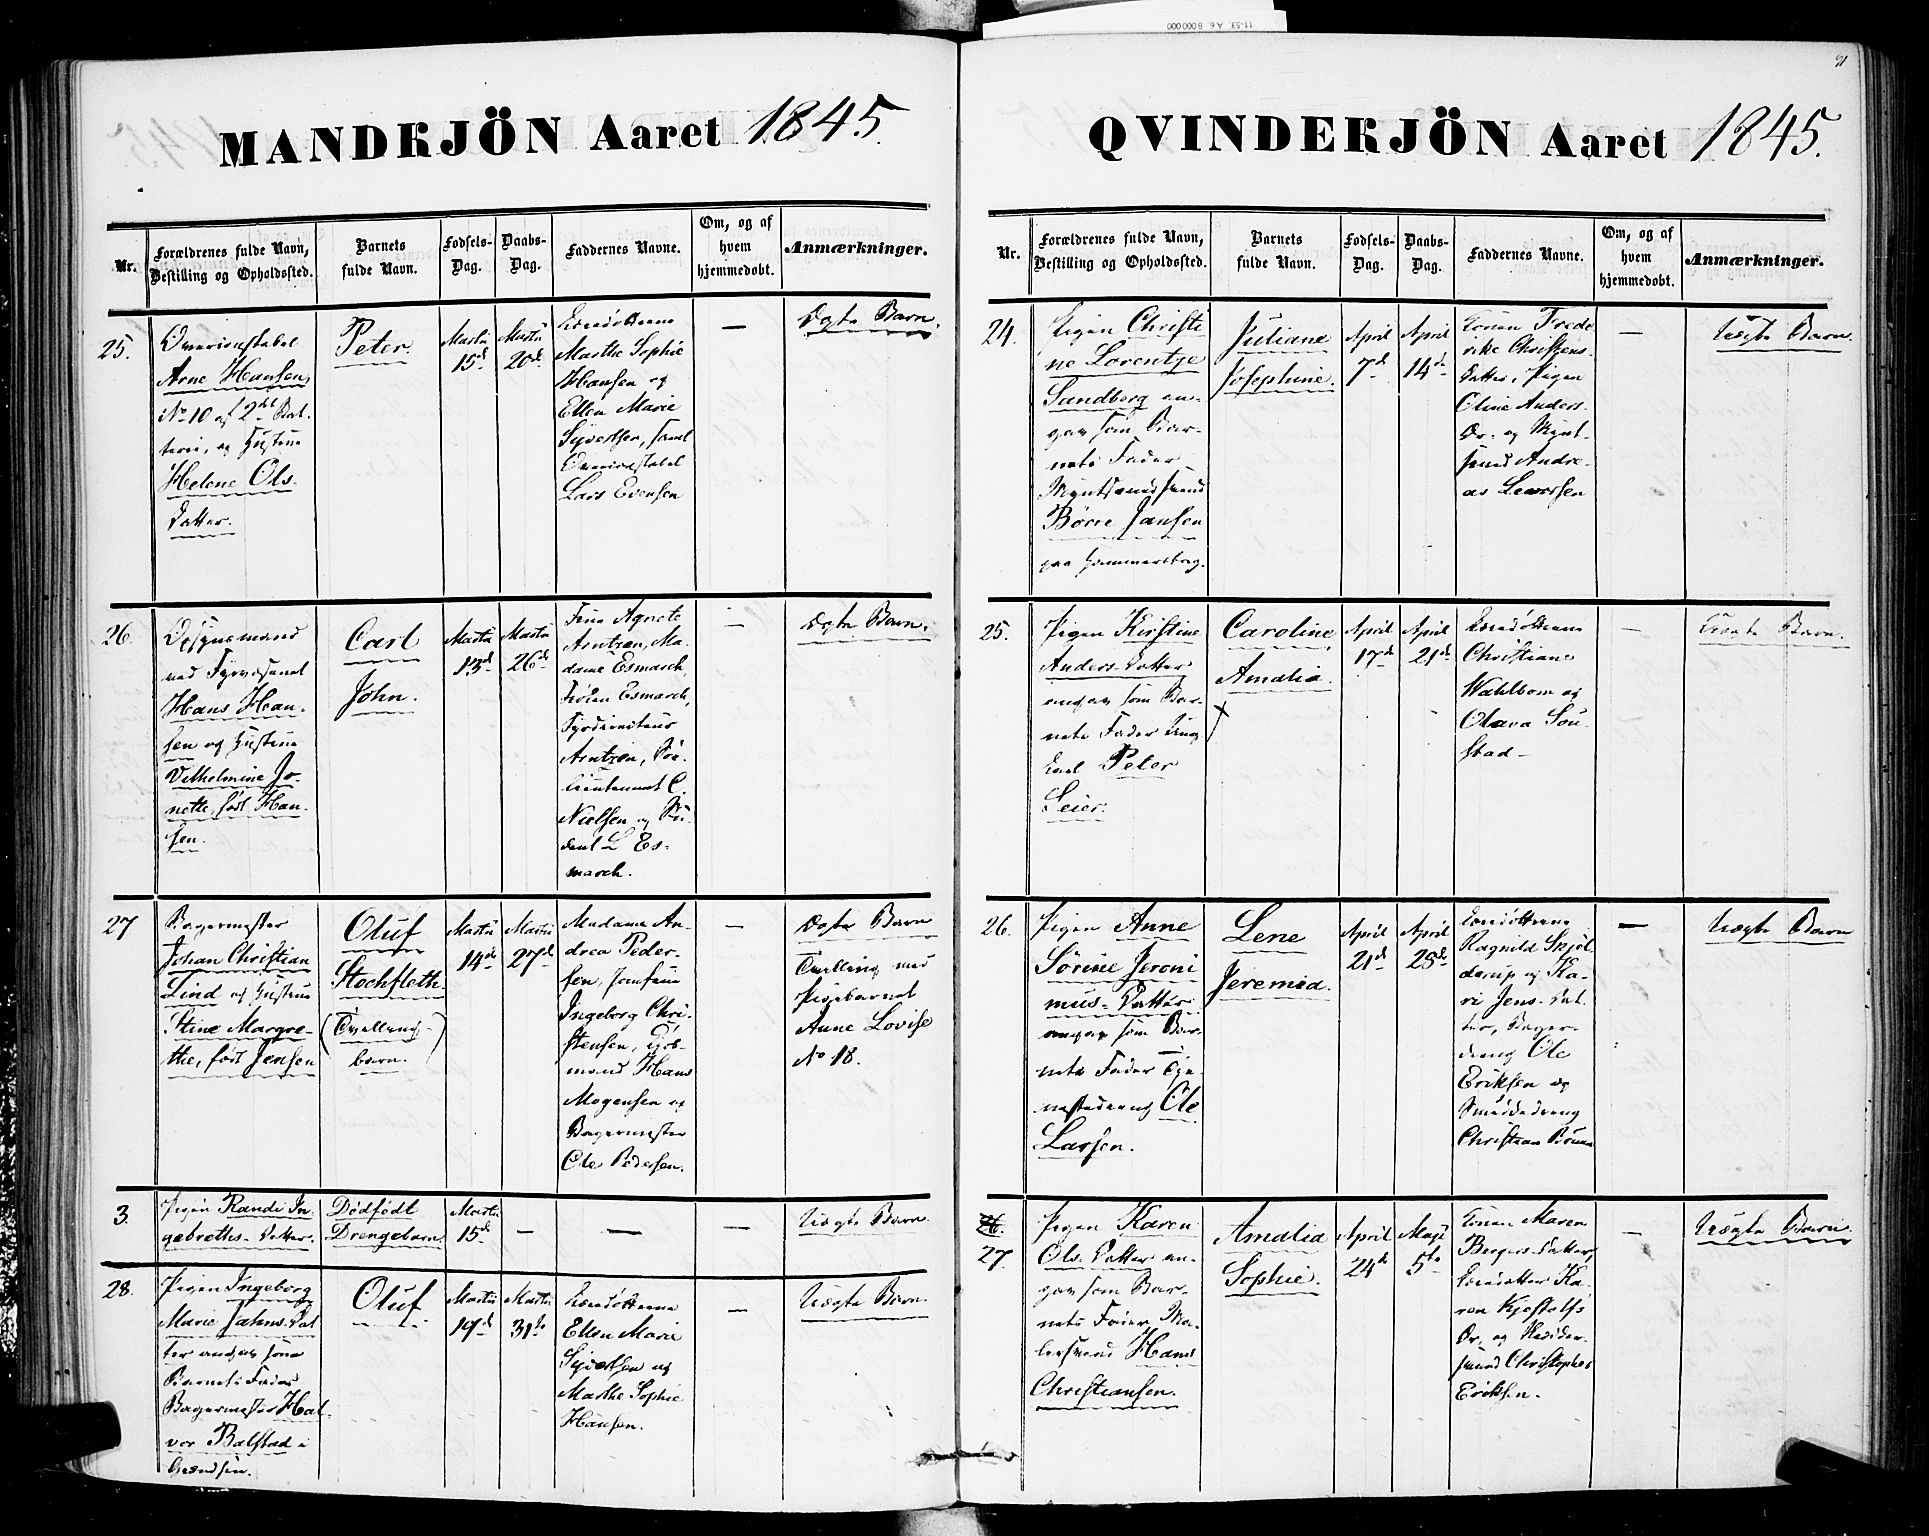 11-53. A6. 8000000
91
MANDKJÖN Aaret 1845.
Nr.
Forældrenes fulde Navn,
Bestilling og Opholdssted.
Barnets
fulde Navn.
Fødsels-
Dag.
Daabs-
Dag.
Faddernes Navne.
Om, og af
hvem
hjemmedøbt.
Anmærkninger.
25.
Arne Hansen,
No 10 af 2det Bat-
terie, og Hustrue
Helene Ols-
Datter.
Peter.
Martii
15de
Martii
20de
Marthe Sophie
Hansen og
Ellen Marie
Syvertsen, samt
Lars Evensen
—
Ægte Barn.
26
ved Fyrvæsenet
Hans Han-
sen og Hustrue
Vilhelmine Jo-
nette, født Han-
sen.
Carl
John.
Martii
13de
Martii
26de
Frue Agnete
Arntzen, Ma-
dame Esmarch,
Frøken Esmarch,
Arntzen, Søe-
lieutenant C.
Nielsen og Stu-
dent L Es-
march.
—
Ægte Barn.
27
Bagermester
Johan Christian
Lind og Hustrue
Stine Margre-
the, født Jensen
Oluf
Stochfleth.
(Tvelling-
barn.)
Martii
14de
Martii
27de
Madame An-
drea Peder-
sen, Jomfrue
Ingeborg Chri-
stensen,
Hans
Mogensen og
Bagermester
Ole Pedersen.
—
Ægte Barn
Tvelling med
Pigebarnet
Anne Lovise
No 18.
3.
Pigen Randi In-
gebreths-Datter.
Dødfødt
Drengebarn.
Martii
15de
—
—
—
Uægte Barn.
28.
Pigen Ingeborg
Marie Jahns-Dat
ter angav som
Barnets Fader
Bagermester Hal-
vor Balstad i
Oluf.
Martii
19de
Martii
31te
Ellen Marie
Syvertsen og
Marthe Sophie
Hansen.
—
Uægte Barn.
QVINDEKJÖN Aaret 1845.
Nr.
Forældrenes fulde Navn,
Bestilling og Opholdssted.
Barnets
fulde Navn.
Fødsels-
Dag.
Daabs-
Dag.
Faddernes Navne.
Om, og af
hvem
hjemmedøbt.
Anmærkninger.
24.
Pigen Christi
ne Lorentze
Sandberg an-
gav som Bar-
nets Fader
Børre Jansen
paa Hammersborg.
Juliane
Josephine.
April
7de
April
14de
Konen Frede
rike Christens-
Datter, Pigen
Oline Anders-
Dr. og Mynt-
svend Andre-
as
—
Uægte Barn.
25.
Pigen Kirstine
Anders-Datter
angav som Bar-
nets Fader
Peter
Seier.
Caroline
Amalia.
April
17de
April
21de
Christiane
Wahlbom og
Olava Sou-
stad —
—
Uægte Barn.
26.
Pigen Anne
Sørine Jeroni
mus-Datter
angav som Bar-
nets Fader Tje-
nestedreng Ole
Larsen.
Lene
Jeremia.
April
21de
April
25de
Ragnild Skjøl-
derup og Ka-
ri Jens-Dat-
ter, Bager-
dreng Ole
Eriksen og
Smeddedreng
Christian Bruun
—
Uægte Barn
26.
27.
Pigen Karen
Ols-Datter an-
gav som Bar-
nets Fader Ma-
lersvend Hans
Christiansen.
Amalia
Sophie.
April
24de
Maji
5te
Konen Maren
Bergers-Datter,
Ka-
ren Kjostolfs
Dr. og
svend Christopher
Eriksen.
—
Uægte Barn.